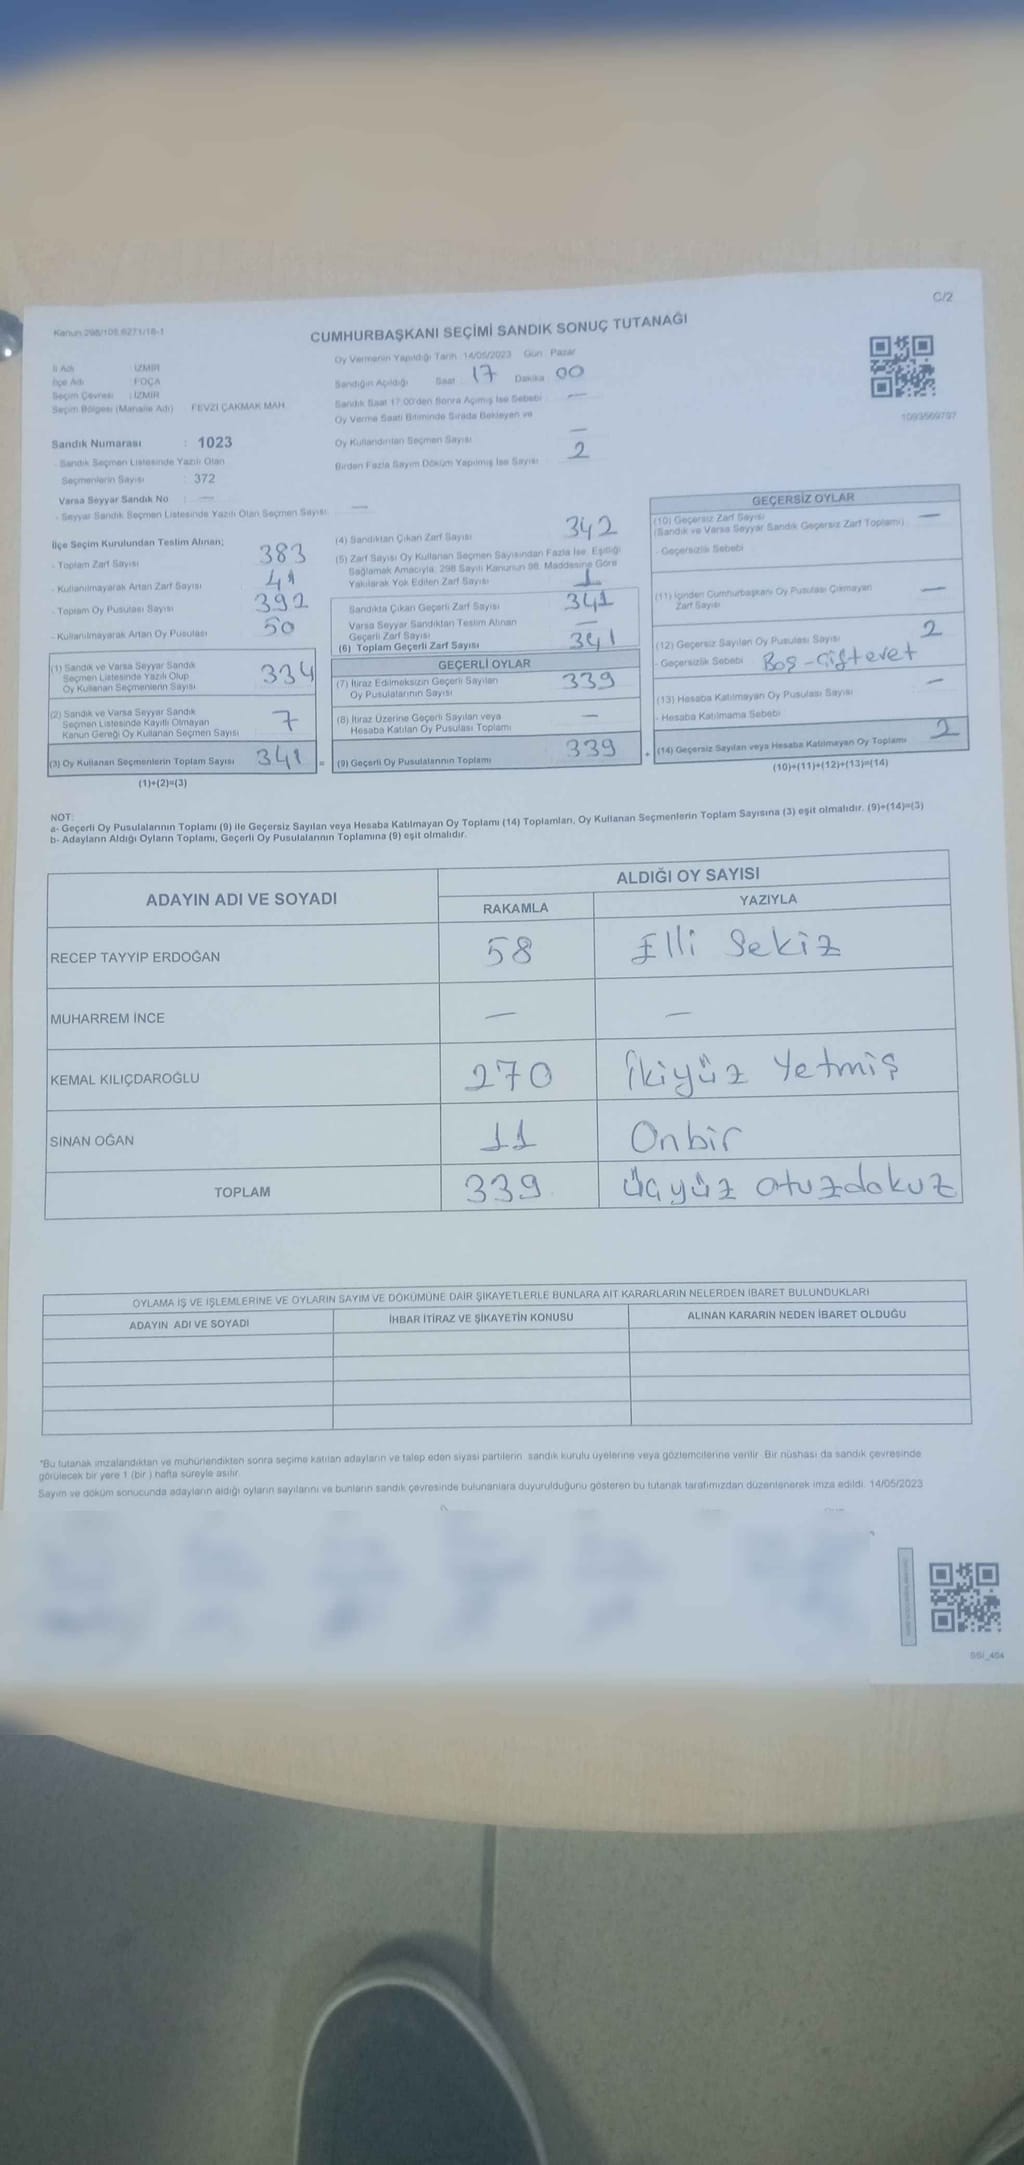 C/2
Kanun 298/105 6271/18-1
CUMHURBAŞKANI SEÇİMİ SANDIK SONUÇ TUTANAĞI
İl Adı : İZMİR
İlçe Adı : FOÇA
Seçim Çevresi : İZMİR
Seçim Bölgesi (Mahalle Adı) FEVZİ ÇAKMAK MAH.
Sandık Numarası : 1023
- Sandık Seçmen Listesinde Yazılı Olan
Seçmenlerin Sayısı : 372
Varsa Seyyar Sandık No : —
- Seyyar Sandık Seçmen Listesinde Yazılı Olan Seçmen Sayısı —
Oy Vermenin Yapıldığı Tarih : 14/05/2023 Gün : Pazar
Sandığın Açıldığı Saat : 17 Dakika : 00
Sandık Saat 17:00'den Sonra Açılmış İse Sebebi —
Oy Verme Saati Bitiminde Sırada Bekleyen ve
Oy Kullandırılan Seçmen Sayısı —
Birden Fazla Sayım Döküm Yapılmış İse Sayısı 2
1093569707
İlçe Seçim Kurulundan Teslim Alınan;
- Toplam Zarf Sayısı 383
- Kullanılmayarak Artan Zarf Sayısı 41
- Toplam Oy Pusulası Sayısı 392
- Kullanılmayarak Artan Oy Pusulası 50
(1) Sandık ve Varsa Seyyar Sandık
Seçmen Listesinde Yazılı Olup
Oy Kullanan Seçmenlerin Sayısı 334
(2) Sandık ve Varsa Seyyar Sandık
Seçmen Listesinde Kayıtlı Olmayan
Kanun Gereği Oy Kullanan Seçmen Sayısı 7
(3) Oy Kullanan Seçmenlerin Toplam Sayısı 341 =
(1)+(2)=(3)
(4) Sandıktan Çıkan Zarf Sayısı 342
(5) Zarf Sayısı Oy Kullanan Seçmen Sayısından Fazla İse, Eşitliği
Sağlamak Amacıyla, 298 Sayılı Kanunun 98. Maddesine Göre
Yakılarak Yok Edilen Zarf Sayısı 1
Sandıkta Çıkan Geçerli Zarf Sayısı 341
Varsa Seyyar Sandıktan Teslim Alınan
Geçerli Zarf Sayısı —
(6) Toplam Geçerli Zarf Sayısı 341
GEÇERLİ OYLAR
(7) İtiraz Edilmeksizin Geçerli Sayılan
Oy Pusulalarının Sayısı 339
(8) İtiraz Üzerine Geçerli Sayılan veya
Hesaba Katılan Oy Pusulası Toplamı —
(9) Geçerli Oy Pusulalarının Toplamı 339 +
GEÇERSİZ OYLAR
(10) Geçersiz Zarf Sayısı —
(Sandık ve Varsa Seyyar Sandık Geçersiz Zarf Toplamı)
- Geçersizlik Sebebi
(11) İçinden Cumhurbaşkanı Oy Pusulası Çıkmayan
Zarf Sayısı —
(12) Geçersiz Sayılan Oy Pusulası Sayısı 2
- Geçersizlik Sebebi Boş - Çift evet
(13) Hesaba Katılmayan Oy Pusulası Sayısı —
- Hesaba Katılmama Sebebi
(14) Geçersiz Sayılan veya Hesaba Katılmayan Oy Toplamı 2
(10)+(11)+(12)+(13)=(14)
NOT:
a- Geçerli Oy Pusulalarının Toplamı (9) ile Geçersiz Sayılan veya Hesaba Katılmayan Oy Toplamı (14) Toplamları, Oy Kullanan Seçmenlerin Toplam Sayısına (3) eşit olmalıdır. (9)+(14)=(3)
b- Adayların Aldığı Oyların Toplamı, Geçerli Oy Pusulalarının Toplamına (9) eşit olmalıdır.
ADAYIN ADI VE SOYADI ALDIĞI OY SAYISI
RAKAMLA YAZIYLA
RECEP TAYYİP ERDOĞAN 58 Elli Sekiz
MUHARREM İNCE — —
KEMAL KILIÇDAROĞLU 270 İkiyüz Yetmiş
SİNAN OĞAN 11 Onbir
TOPLAM 339 Üçyüz otuzdokuz
OYLAMA İŞ VE İŞLEMLERİNE VE OYLARIN SAYIM VE DÖKÜMÜNE DAİR ŞİKAYETLERLE BUNLARA AİT KARARLARIN NELERDEN İBARET BULUNDUKLARI
ADAYIN ADI VE SOYADI İHBAR İTİRAZ VE ŞİKAYETİN KONUSU ALINAN KARARIN NEDEN İBARET OLDUĞU
*Bu tutanak imzalandıktan ve mühürlendikten sonra seçime katılan adayların ve talep eden siyasi partilerin sandık kurulu üyelerine veya gözlemcilerine verilir. Bir nüshası da sandık çevresinde
görülecek bir yere 1 (bir ) hafta süreyle asılır.
Sayım ve döküm sonucunda adayların aldığı oyların sayılarını ve bunların sandık çevresinde bulunanlara duyurulduğunu gösteren bu tutanak tarafımızdan düzenlenerek imza edildi. 14/05/2023